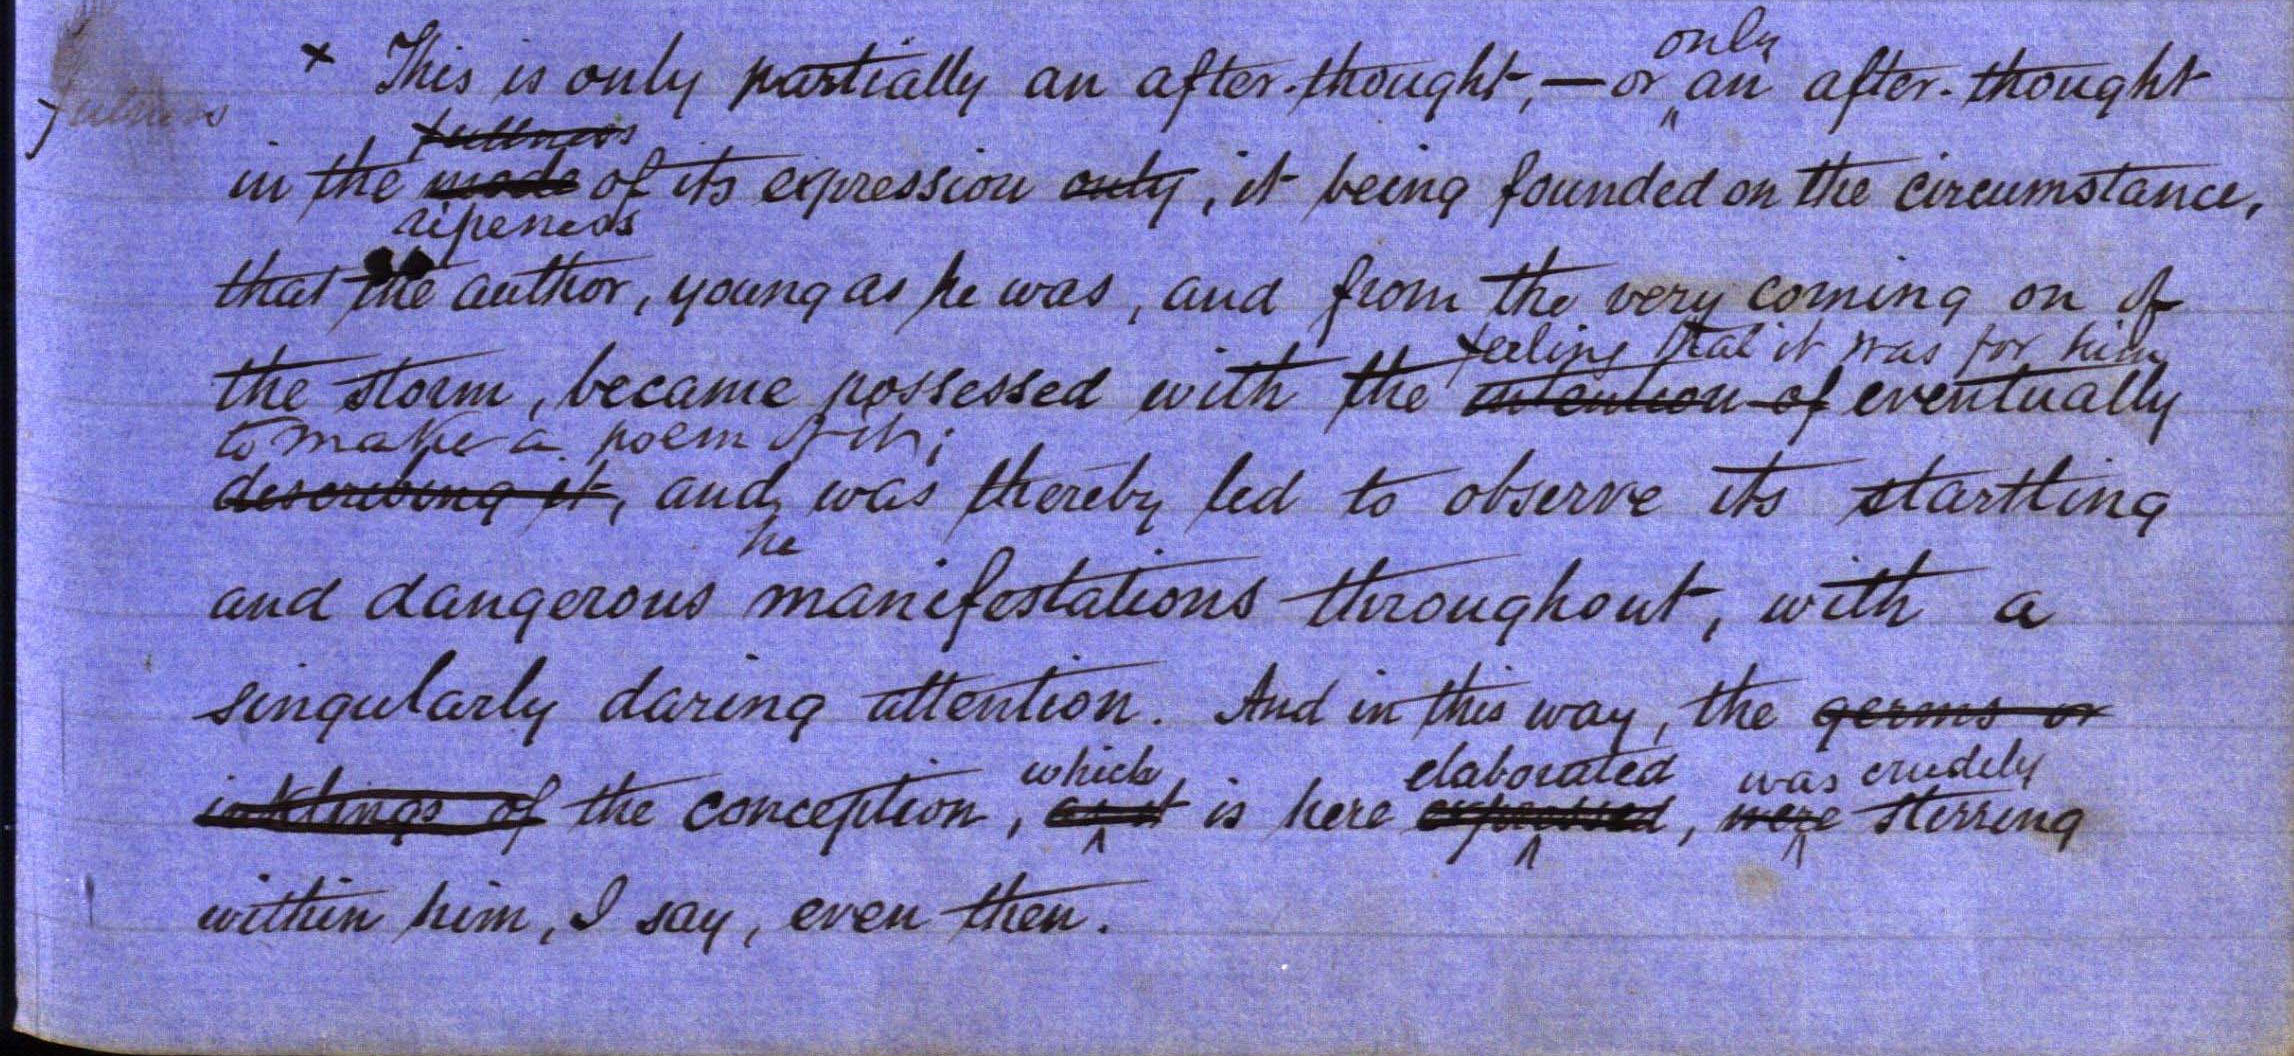 only
× This is only partially an after-thought, — or an after-thought
fulness
fullness
in the mode of its expression only, it being founded on the circumstance,
ripeness
that the author, young as he was, and from the very coming on of
feeling that it was for him
the storm, became possessed with the intention of eventually
to make a poem of it;
describing it, and was thereby led to observe its startling
he
and dangerous manifestations throughout, with a
singularly daring attention. And in this way, the germs or
which elaborated was crudely
inklings of the conception, as it is here expressed, were stirring
within him, I say, even then.